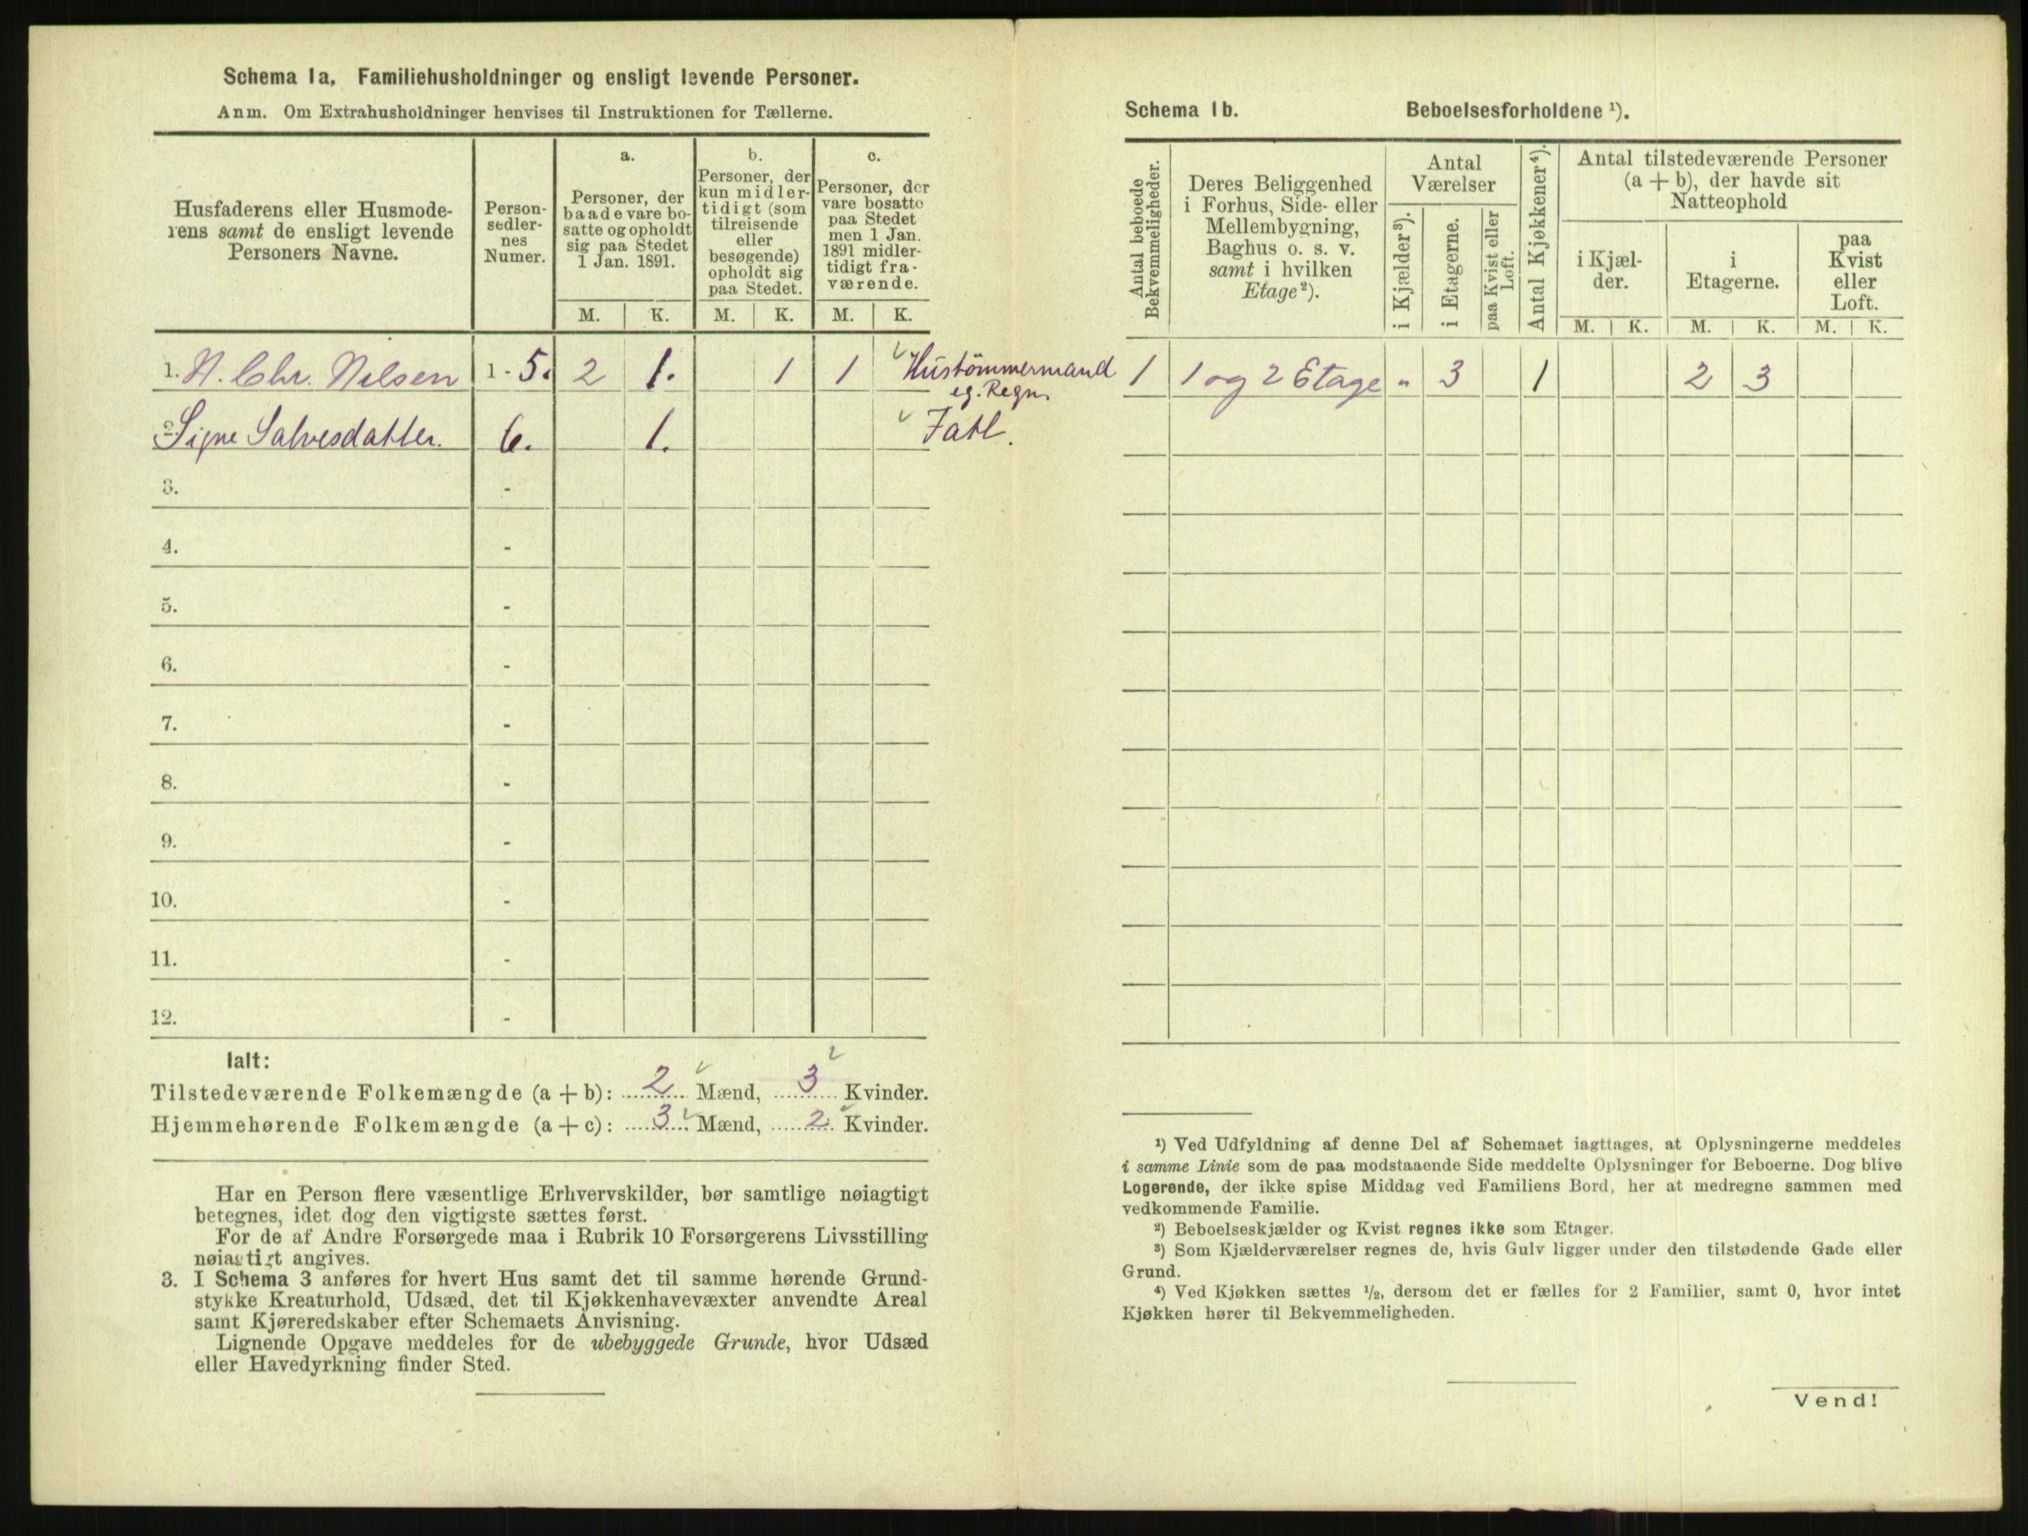 Schema 1a. Familiehusholdninger og ensligt levende Personer.
Anm. Om Extrahusholdninger henvises til Instruktionen for Tællerne.
Husfaderens eller Husmode-
rens samt de ensligt levende
Personers Navne.
Person-
sedler-
nes
Numer.
a.
Personer, der
baade vare bo-
satte og opholdt
sig paa Stedet
1 Jan. 1891.
b.
Personer, der
kun midler-
tidigt (som
tilreisende
eller
besøgende)
opholdt sig
paa Stedet.
c.
Personer, der
vare bosatte
paa Stedet
men 1 Jan.
1891 midler-
tidigt fra-
værende.
M. K. M. K. M. K.
1. N. Chr. Nilsen 1 - 5. 2 1. 1 1 Hustømmermand
eg. Regn.
2. Signe Salvesdatter. 6. 1. Fatl.
3. -
4. -
5. -
6. -
7. -
8. -
9. -
10. -
11. -
12. -
Ialt:
Tilstedeværende Folkemængde (a + b): 2 Mænd, 3 Kvinder.
Hjemmehørende Folkemængde (a + c): 3 Mænd, 2 Kvinder.
Har en Person flere væsentlige Erhvervskilder, bør samtlige nøiagtigt
betegnes, idet dog den vigtigste sættes først.
For de af Andre Forsørgede maa i Rubrik 10 Forsørgerens Livsstilling
nøiagtigt angives.
3. I Schema 3 anføres for hvert Hus samt det til samme hørende Grund-
stykke Kreaturhold, Udsæd, det til Kjøkkenhavevæxter anvendte Areal
samt Kjøreredskaber efter Schemaets Anvisning.
Lignende Opgave meddeles for de ubebyggede Grunde, hvor Udsæd
eller Havedyrkning finder Sted.
Schema 1b. Beboelsesforholdene ¹).
Antal beboede
Bekvemmeligheder.
Deres Beliggenhed
i Forhus, Side- eller
Mellembygning,
Baghus o. s. v.
samt i hvilken
Etage²).
Antal
Værelser
i Kjælder³).
i Etagerne.
paa Kvist eller
Loft.
Antal Kjøkkener⁴).
Antal tilstedeværende Personer
(a + b), der havde sit
Natteophold
i Kjæl-
der.
i
Etagerne.
paa
Kvist
eller
Loft.
M. K. M. K. M. K.
1 1 og 2 Etage " 3 1 2 3
¹) Ved Udfyldning af denne Del af Schemaet iagttages, at Oplysningerne meddeles
i samme Linie som de paa modstaaende Side meddelte Oplysninger for Beboerne. Dog blive
Logerende, der ikke spise Middag ved Familiens Bord, her at medregne sammen med
vedkommende Familie.
²) Beboelseskjælder og Kvist regnes ikke som Etager.
³) Som Kjælderværelser regnes de, hvis Gulv ligger under den tilstødende Gade eller
Grund.
⁴) Ved Kjøkken sættes ½, dersom det er fælles for 2 Familier, samt 0, hvor intet
Kjøkken hører til Bekvemmeligheden.
Vend!